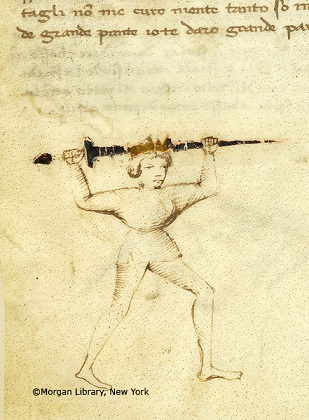 tagli nō me curo niente tanto so
de grande punte io te daro grande
©Morgan Library, New York